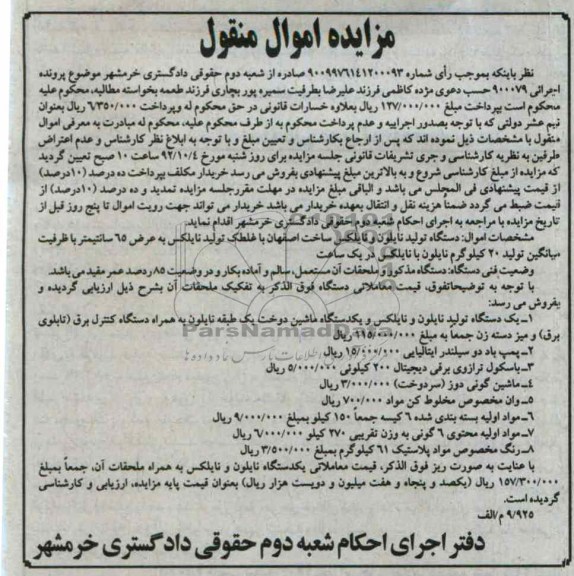 مزایده اموال منقول
نظر باینکه بموجب رأی شماره ۹۰۰۹۹۷۶۱۴۱۲۰۰۰۹۳ صادره از شعبه دوم حقوقی دادگستری خرمشهر موضوع پرونده
اجرائی ۹۰۰۰۷۹ حسب دعوی مژده کاظمی فرزند علیرضا بطرفیت سمیره پور بچاری فرزند طعمه بخواسته مطالبه، محکوم علیه
محکوم است بپرداخت مبلغ ۱۲۷/۰۰۰/۰۰۰ ریال بعلاوه خسارات قانونی در حق محکوم له وپرداخت ۶/۳۵۰/۰۰۰ ریال بعنوان
نیم عشر دولتی که با توجه بصدور اجراییه و عدم پرداخت محکوم به از طرف محکوم علیه، محکوم له مبادرت به معرفی اموال
منقول با مشخصات ذیل نموده اند که پس از ارجاع بکارشناس و تعیین مبلغ و با توجه به ابلاغ نظر کارشناس و عدم اعتراض
طرفین به نظریه کارشناسی و جری تشریفات قانونی جلسه مزایده برای روز شنبه مورخ ۹۲/۱۰/۴ ساعت ۱۰ صبح تعیین گردید
که مزایده از مبلغ کارشناسی شروع و به بالاترین مبلغ پیشنهادی بفروش می رسد خریدار مکلف بپرداخت ده درصد (۱۰درصد)
از قیمت پیشنهادی فی المجلس می باشد و الباقی مبلغ مزایده در مهلت مقررجلسه مزایده تمدید و ده درصد (۱۰درصد) از
قیمت ضبط می گردد ضمناً هزینه نقل و انتقال بعهده خریدار می باشد خریدار می تواند جهت رویت اموال تا پنج روز قبل از
تاریخ مزایده با مراجعه به اجرای احکام شعبه دوم حقوقی دادگستری خرمشهر اقدام نماید.
مشخصات اموال: دستگاه تولید نایلون و نایلکس ساخت اصفهان با غلطک تولید نایلکس به عرض ۶۵ سانتیمتر با ظرفیت
میانگین تولید ۲۰ کیلوگرم نایلون یا نایلکس در یک ساعت
وضعیت فنی دستگاه: دستگاه مذکور و ملحقات آن مستعمل، سالم و آماده بکار و در وضعیت ۸۵ درصد عمر مفید می باشد.
با توجه به توضیحاتفوق، قیمت معاملاتی دستگاه فوق الذکر به تفکیک ملحقات آن بشرح ذیل ارزیابی گردیده و
بفروش می رسد:
۱_ یک دستگاه تولید نایلون و نایلکس و یکدستگاه ماشین دوخت یک طبقه نایلون به همراه دستگاه کنترل برق (تابلوی
برق) و میز دسته زن جمعاً به مبلغ ۱۱۵/۰۰۰/۰۰۰ ریال
۲_ پمپ باد دو سیلندر ایتالیایی ۱۵/۰۰۰/۰۰۰ ریال
۳_ باسکول ترازوی برقی دیجیتال ۲۰۰ کیلوئی ۵/۰۰۰/۰۰۰ ریال
۴_ ماشین گونی دوز (سردوخت) ۳/۰۰۰/۰۰۰ ریال
۵_ وان مخصوص مخلوط کن مواد ۷۰۰/۰۰۰ ریال
۶_ مواد اولیه بسته بندی شده ۶ کیسه جمعاً ۱۵۰ کیلو بمبلغ ۹/۰۰۰/۰۰۰ ریال
۷_ مواد اولیه محتوی ۶ گونی به وزن تقریبی ۲۷۰ کیلو ۶/۰۰۰/۰۰۰ ریال
۸_ رنگ مخصوص مواد پلاستیک ۶۱ کیلوگرم بمبلغ ۳/۵۰۰/۰۰۰ ریال
با عنایت به صورت ریز فوق الذکر، قیمت معاملاتی یکدستگاه نایلون و نایلکس به همراه ملحقات آن، جمعاً بمبلغ
۱۵۷/۳۰۰/۰۰۰ ریال (یکصد و پنجاه و هفت میلیون و دویست هزار ریال) بعنوان قیمت پایه مزایده، ارزیابی و کارشناسی
گردیده است.
۹/۹۲۵ م/الف
دفتر اجرای احکام شعبه دوم حقوقی دادگستری خرمشهر
ParsNamadData